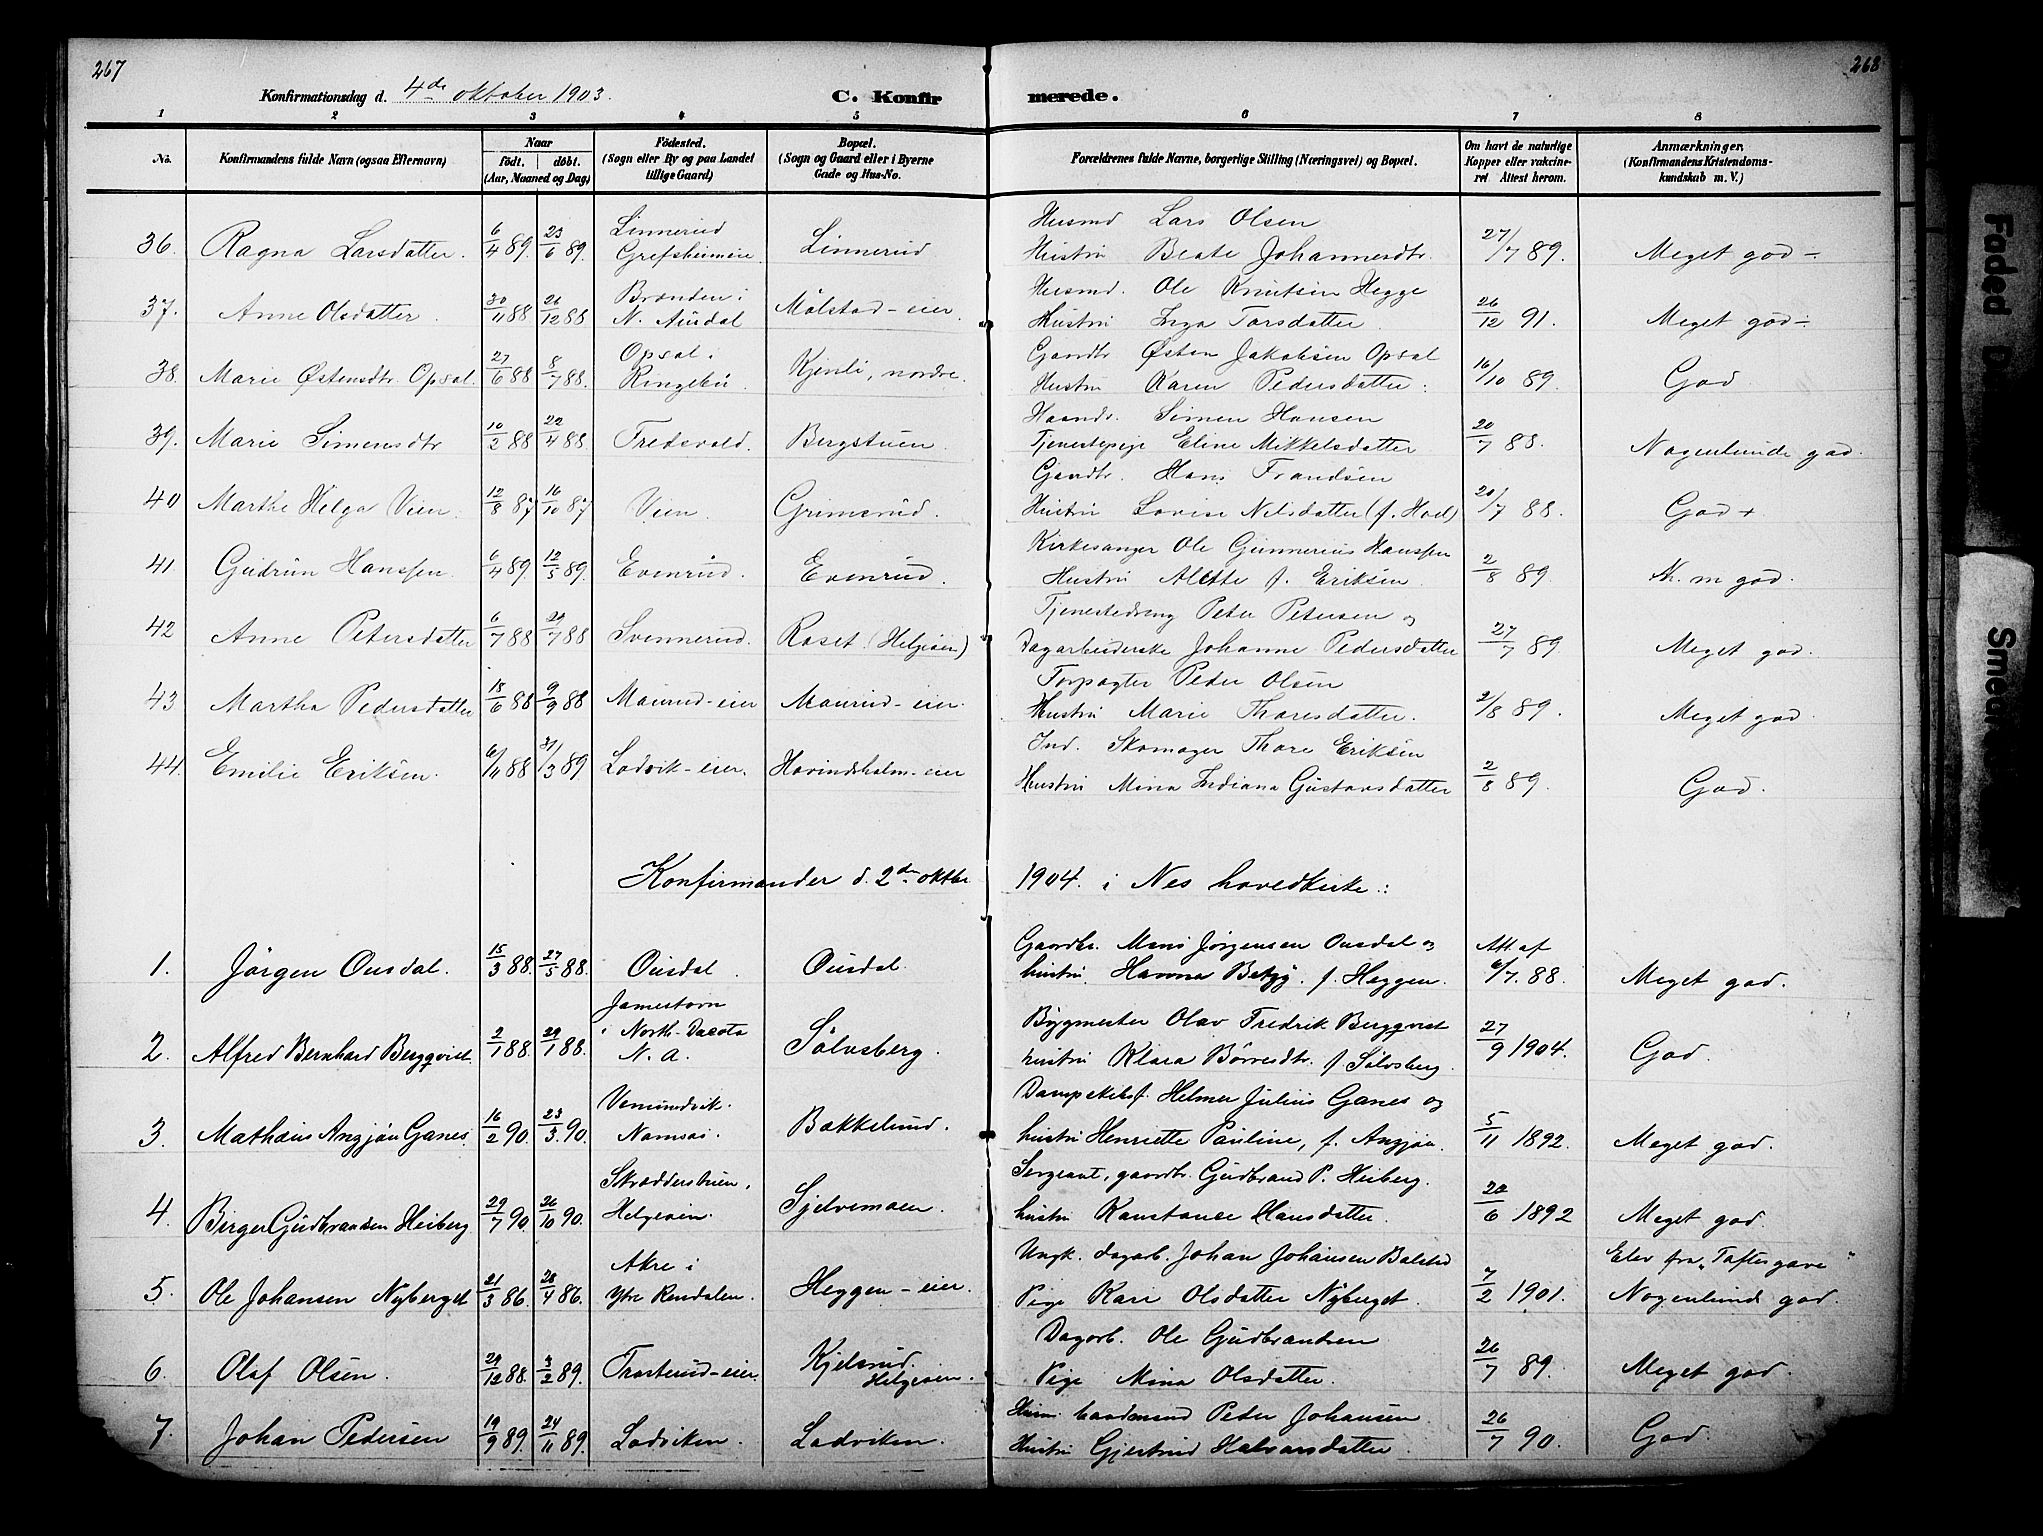 267
268
Konfirmationsdag d. 4de oktober 1903.
C. Konfirmerede.
1 2 3 4 5 6 7 8
No.
Konfirmandens fulde Navn (ogsaa Efternavn)
Naar
født. døbt.
(Aar, Maaned og Dag)
Födested.
(Sogn eller By og paa Landet
tillige Gaard)
Bopæl.
(Sogn og Gaard eller i Byerne
Gade og Hus-No.
Forældrenes fulde Navne, borgerlige Stilling (Næringsvei) og Bopæl.
Om havt de naturlige
Kopper eller vakcine-
ret Attest herom.
Anmærkninger.
(Konfirmandens Kristendoms-
kundskab m. V.)
Linnerud Husmd Lars Olsen
36. Ragna Larsdatter. 6/4 89. 23/6 89. Grefsheimeie Linnerud Hustru Beate Johannesdtr. 27/7 89. Meget god -
Branden i Husmd. Ole Knutsen Hegge
37. Anne Olsdatter. 30/11 88 26/12 88 N. Aurdal Målstad-eier. Hustru Inga Torsdatter. 26/12 91. Meget god -
Opsal i Gaardbr Østen Jakobsen Opsal
38. Marie Østensdtr. Opsal. 27/6 88 8/7 88. Ringebu. Kjenli, nordre. Hustru Karen Pedersdatter. 16/10 89. God
Haandv. Simen Hansen
39. Marie Simensdtr 10/2 88 22/4 88. Fredevold. Bergstuen. Tjenestepige Eline Mikkelsdatter 20/7 88. Nogenlunde god.
Gaardbr. Hans Frandsen
40 Marthe Helga Vien. 12/8 87 16/10 87 Vien. Grimsrud. Hustru Lovise Nilsdatter (f. Hoel) 20/7 88. God +
Kirkesanger Ole Gunnerius Hanssen
41 Gudrun Hanssen. 6/4 89. 12/5 89. Evenrud. Evenrud. Hustru Alette f. Eriksen. 2/8 89. N. m god.
Tjenestedreng Peter Petersen og
42 Anne Petersdatter 6/7 88 29/7 88 Svennerud. Roset (Helgøen) Dagarbeiderske Johanne Pedersdatter 27/7 89 Meget god.
Forpagter Peder Olsen
43 Martha Pedersdatter 18/6 88 9/9 88 Maurud-eier Maurud-eier. Hustru Marie Thoresdatter. 2/8 89. Meget god
Ind. Skomager Thore Eriksen
44. Emilie Eriksen. 6/11 88 31/3 89 Lodvik-eier. Hovindsholm-eier Hustru Mina Indiana Gustavsdatter 2/8 89. God.
Konfirmander d. 2den oktbr. 1904. i Nes hovedkirke:
Gaardbr. Mons Jørgensen Ousdal og Att. af
1. Jörgen Ousdal. 15/3 88. 27/5 88. Ousdal. Ousdal. hustru. Hanna Betzy. f. Heggen. 6/7. 88. Meget god.
Jamestown Bygmester Olav Fredrik Bergqvist
i North-Dacota
2. Alfred Bernhard Bergqvist. 2/1 88. 29/1 88. N. A. Sølvsberg. hustru Klara Børresdtr. f. Sølvsberg 27/9 1904. God.
Vemundvik. Dampskibsf. Helmer Julius Ganes og
3. Mathæus Angjøn Ganes. 16/2 90. 23/3 90. Namsos. Bakkelund. hustru Henriette Pauline, f. Angjøn 5/11 1892. Meget god.
Skrædderstuen, Sergeant, gaardbr. Gudbrand P. Heiberg.
4. Birger Gudbrandsen Heiberg 29/7 90. 26/10 90. Helgøen. Sjelvemoen. hustru Konstance Hansdatter. 20/6 1892 Meget god.
Akre i Ungk. dagarb. Johan Johansen Bolstad Elev fra „Toftes gave"
5. Ole Johansen Nyberget 21/3 86. 28/4 86. Ytre Rendalen. Heggen-eier. Pige Kari Olsdatter Nyberget. 7/2 1901. Nogenlund god.
Kjelsrud. Dagarb. Ole Gudbrandsen
6 Olaf Olsen. 29/12 88. 3/2 89. Trosterud-eier. Helgøen. Pige Mina Olsdatter. 26/7 89. Meget god.
Husm. baadmand Peder Johansen
7. Johan Pedersen 19/9 89. 24/11 89. Lodviken. Lodviken. Hustru Gjertrud Halvorsdatter 26/7 90. God.
Faded D
Smed